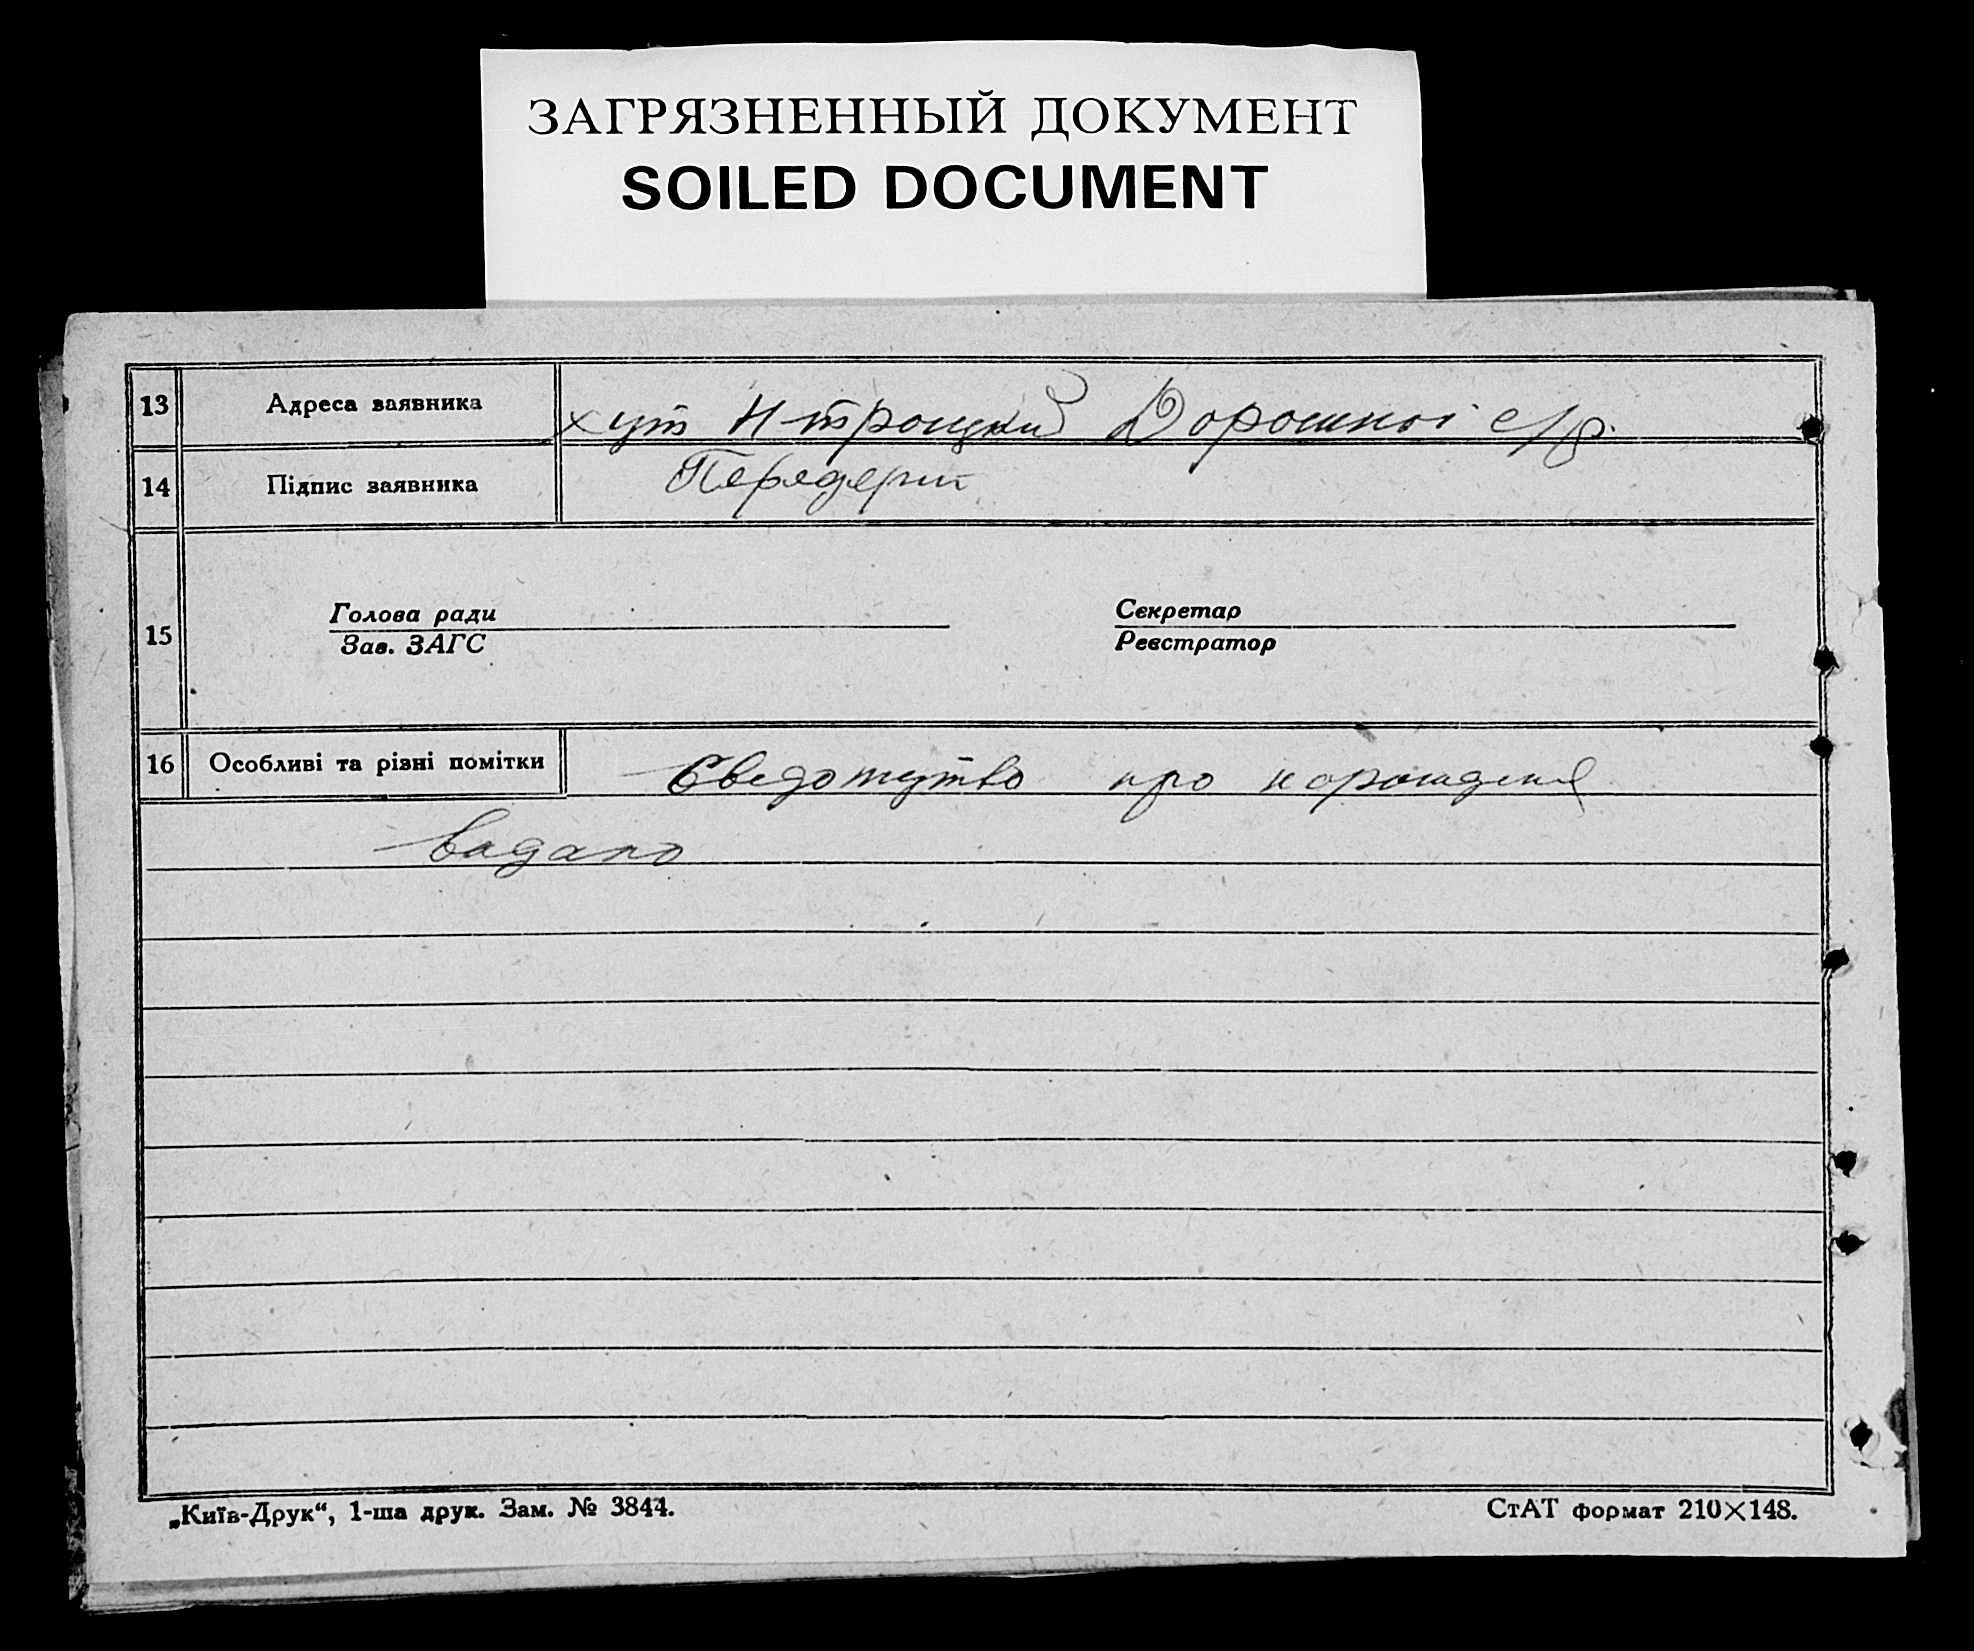 ЗАГРЯЗНЕННЫЙ ДОКУМЕНТ
SOILED DOCUMENT
13 Адреса заявника хут Н-троицкий Дорошної с/р.
14 Підпис заявника Передерий
15 Голова ради Секретар
Зав. ЗАГС Реєстратор
16 Особливі та різні помітки Сведотство про
видано
„Київ-Друк“, 1-ша друк. Зам. № 3844. СтАТ формат 210×148.